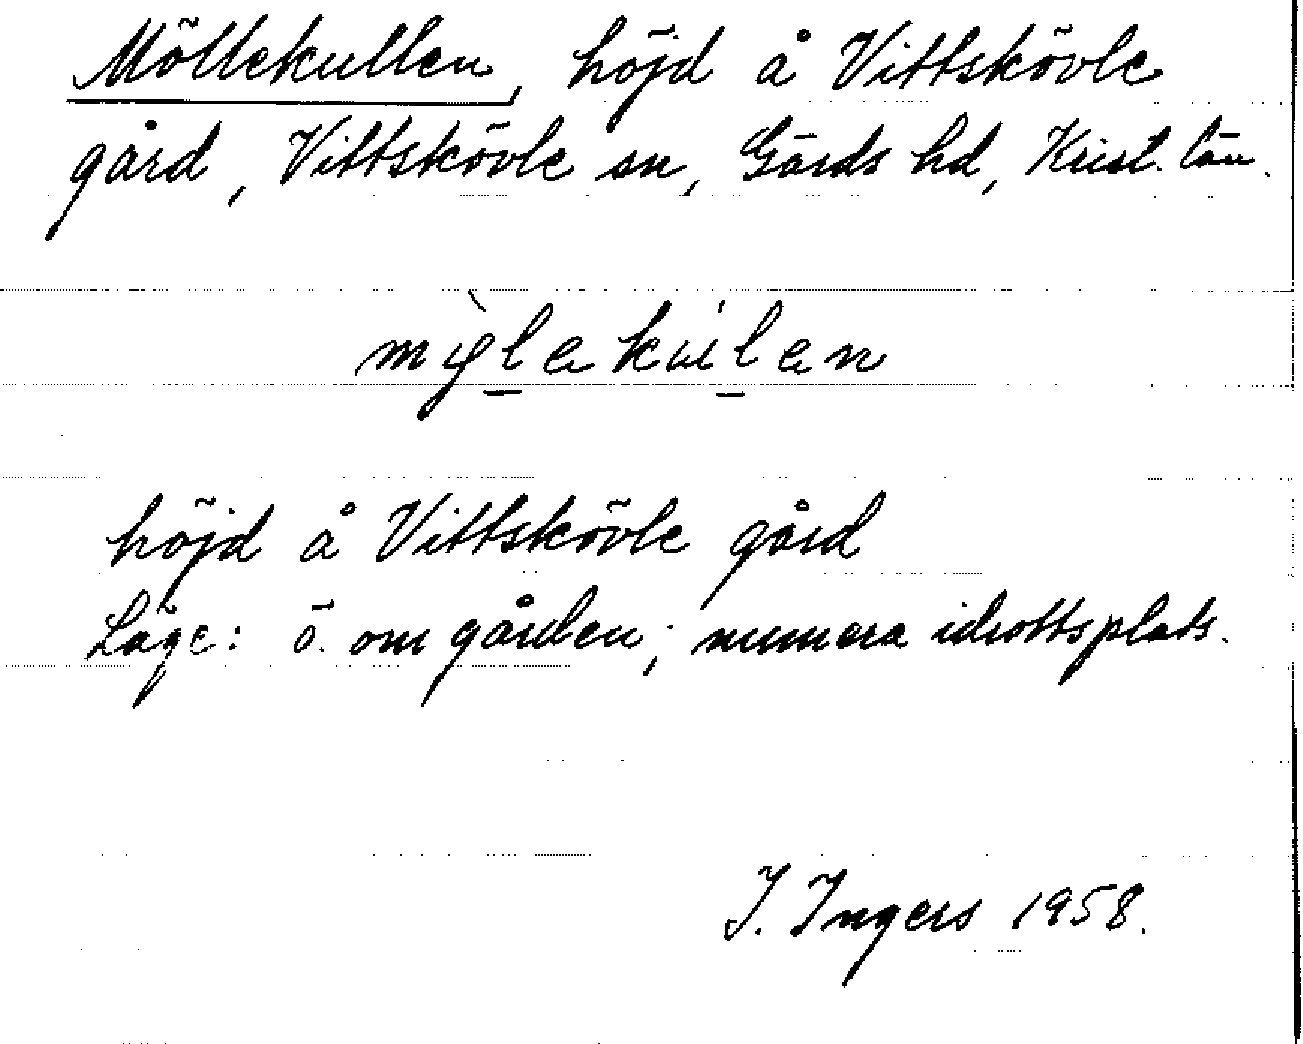 Möllekullen, höjd å Vittskövle
gård, Vittskövle sn, Gärds hd, Krist. län.
mỳl̲ekúl̲en
höjd å Vittskövle gård
Läge: ö. om gården; numera idrottsplats.
I. Ingers 1958.